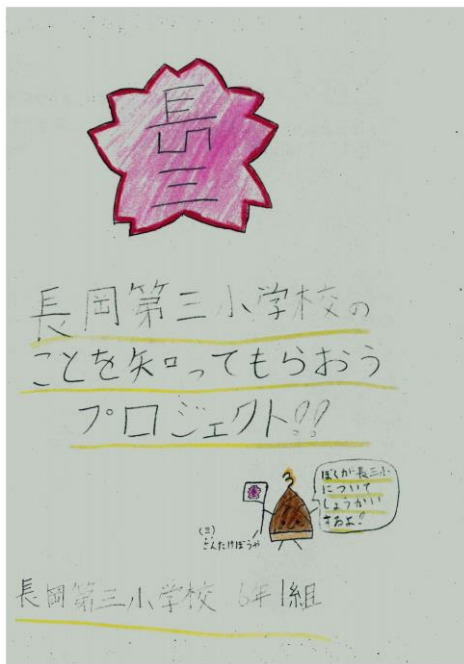 長
三
長岡第三小学校の
ことを知ってもらおう
プロジェクト!!
3
ぼくが長三小
について
しょうかい
するよ!
(三)
長岡第三小学校 6年1組